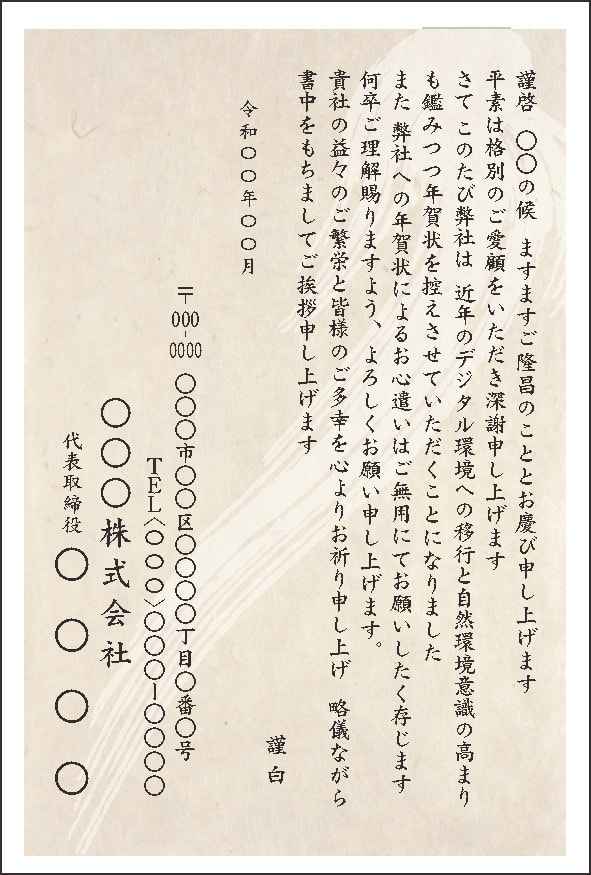 謹啓 〇〇の候 ますますご隆昌のこととお慶び申し上げます
平素は格別のご愛顧をいただき深謝申し上げます
さて このたび弊社は 近年のデジタル環境への移行と自然環境意識の高まり
も鑑みつつ年賀状を控えさせていただくことになりました
また 弊社への年賀状によるお心遣いはご無用にてお願いしたく存じます
何卒ご理解賜りますよう、よろしくお願い申し上げます。
貴社の益々のご繁栄と皆様のご多幸を心よりお祈り申し上げ 略儀ながら
書中をもちましてご挨拶申し上げます
謹白
令和〇〇年〇〇月
〒000-0000 〇〇〇市〇〇区〇〇〇〇丁目〇番〇号
TEL〈〇〇〇〉〇〇〇ー〇〇〇〇
〇〇〇株式会社
代表取締役 〇〇〇〇